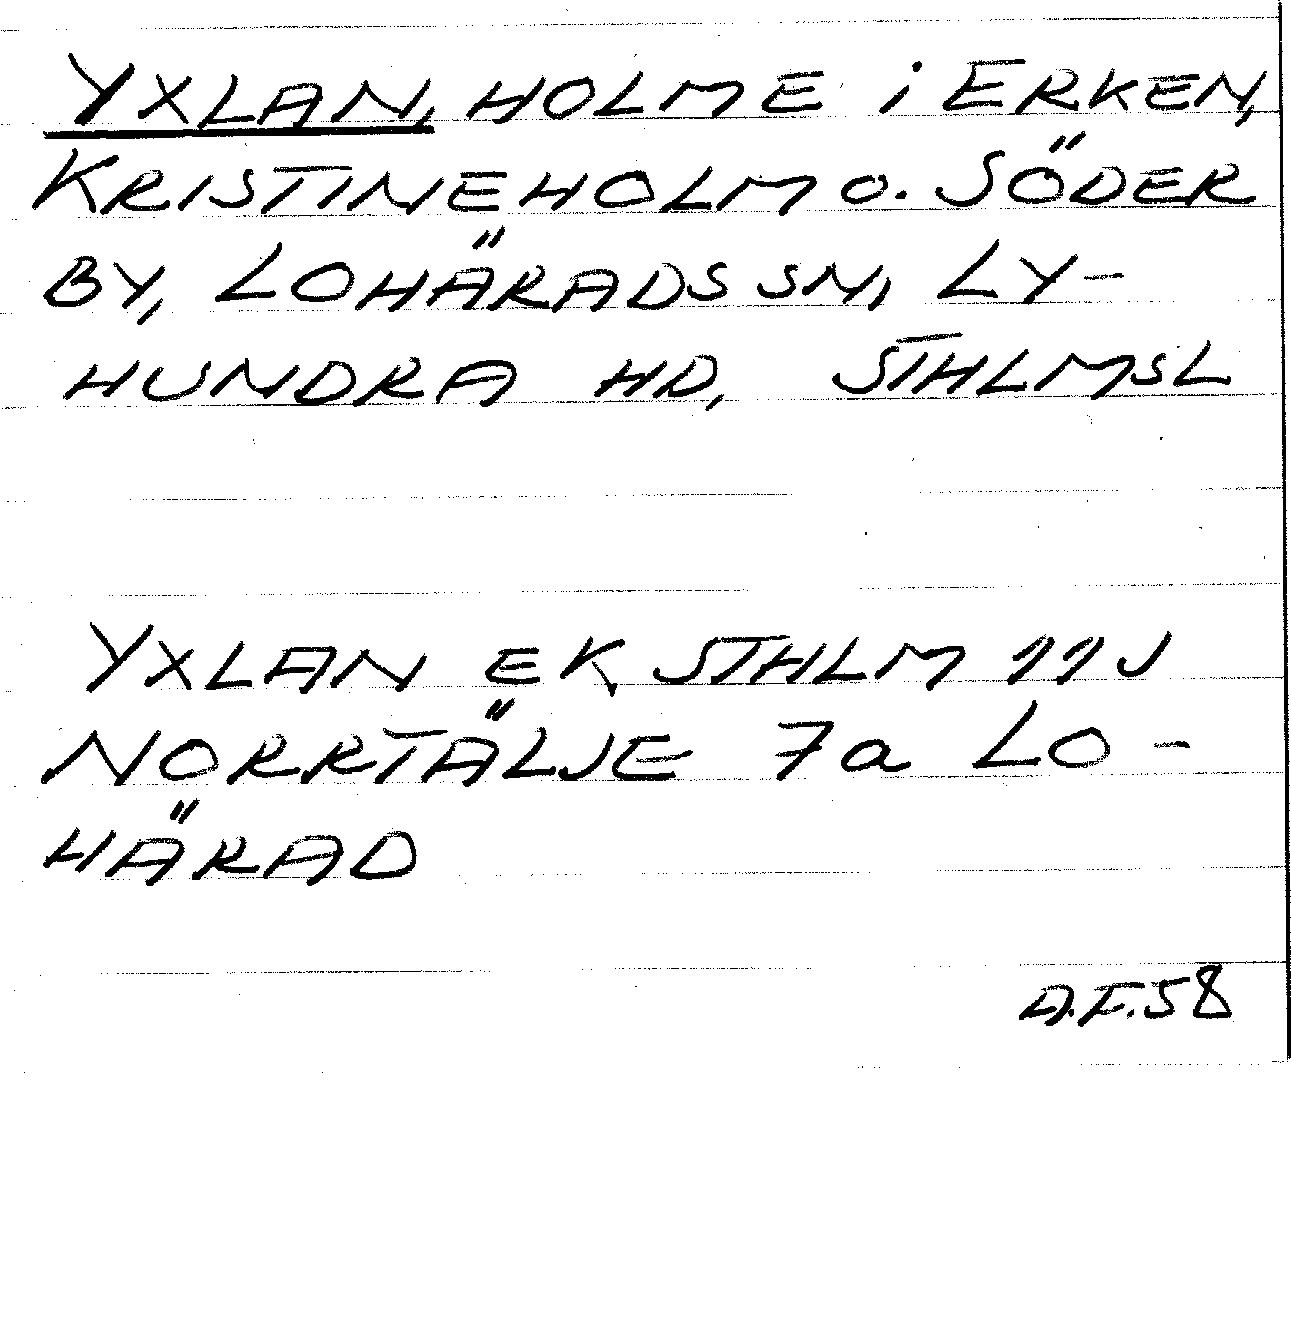 YXLAN, HOLME i ERKEN,
KRISTINEHOLM o. SÖDER
BY, LOHÄRADS SN, LY-
HUNDRA HD, STHLMSL
YXLAN EK STHLM 11J
NORRTÄLJE 7a LO-
HÄRAD
A.F.58